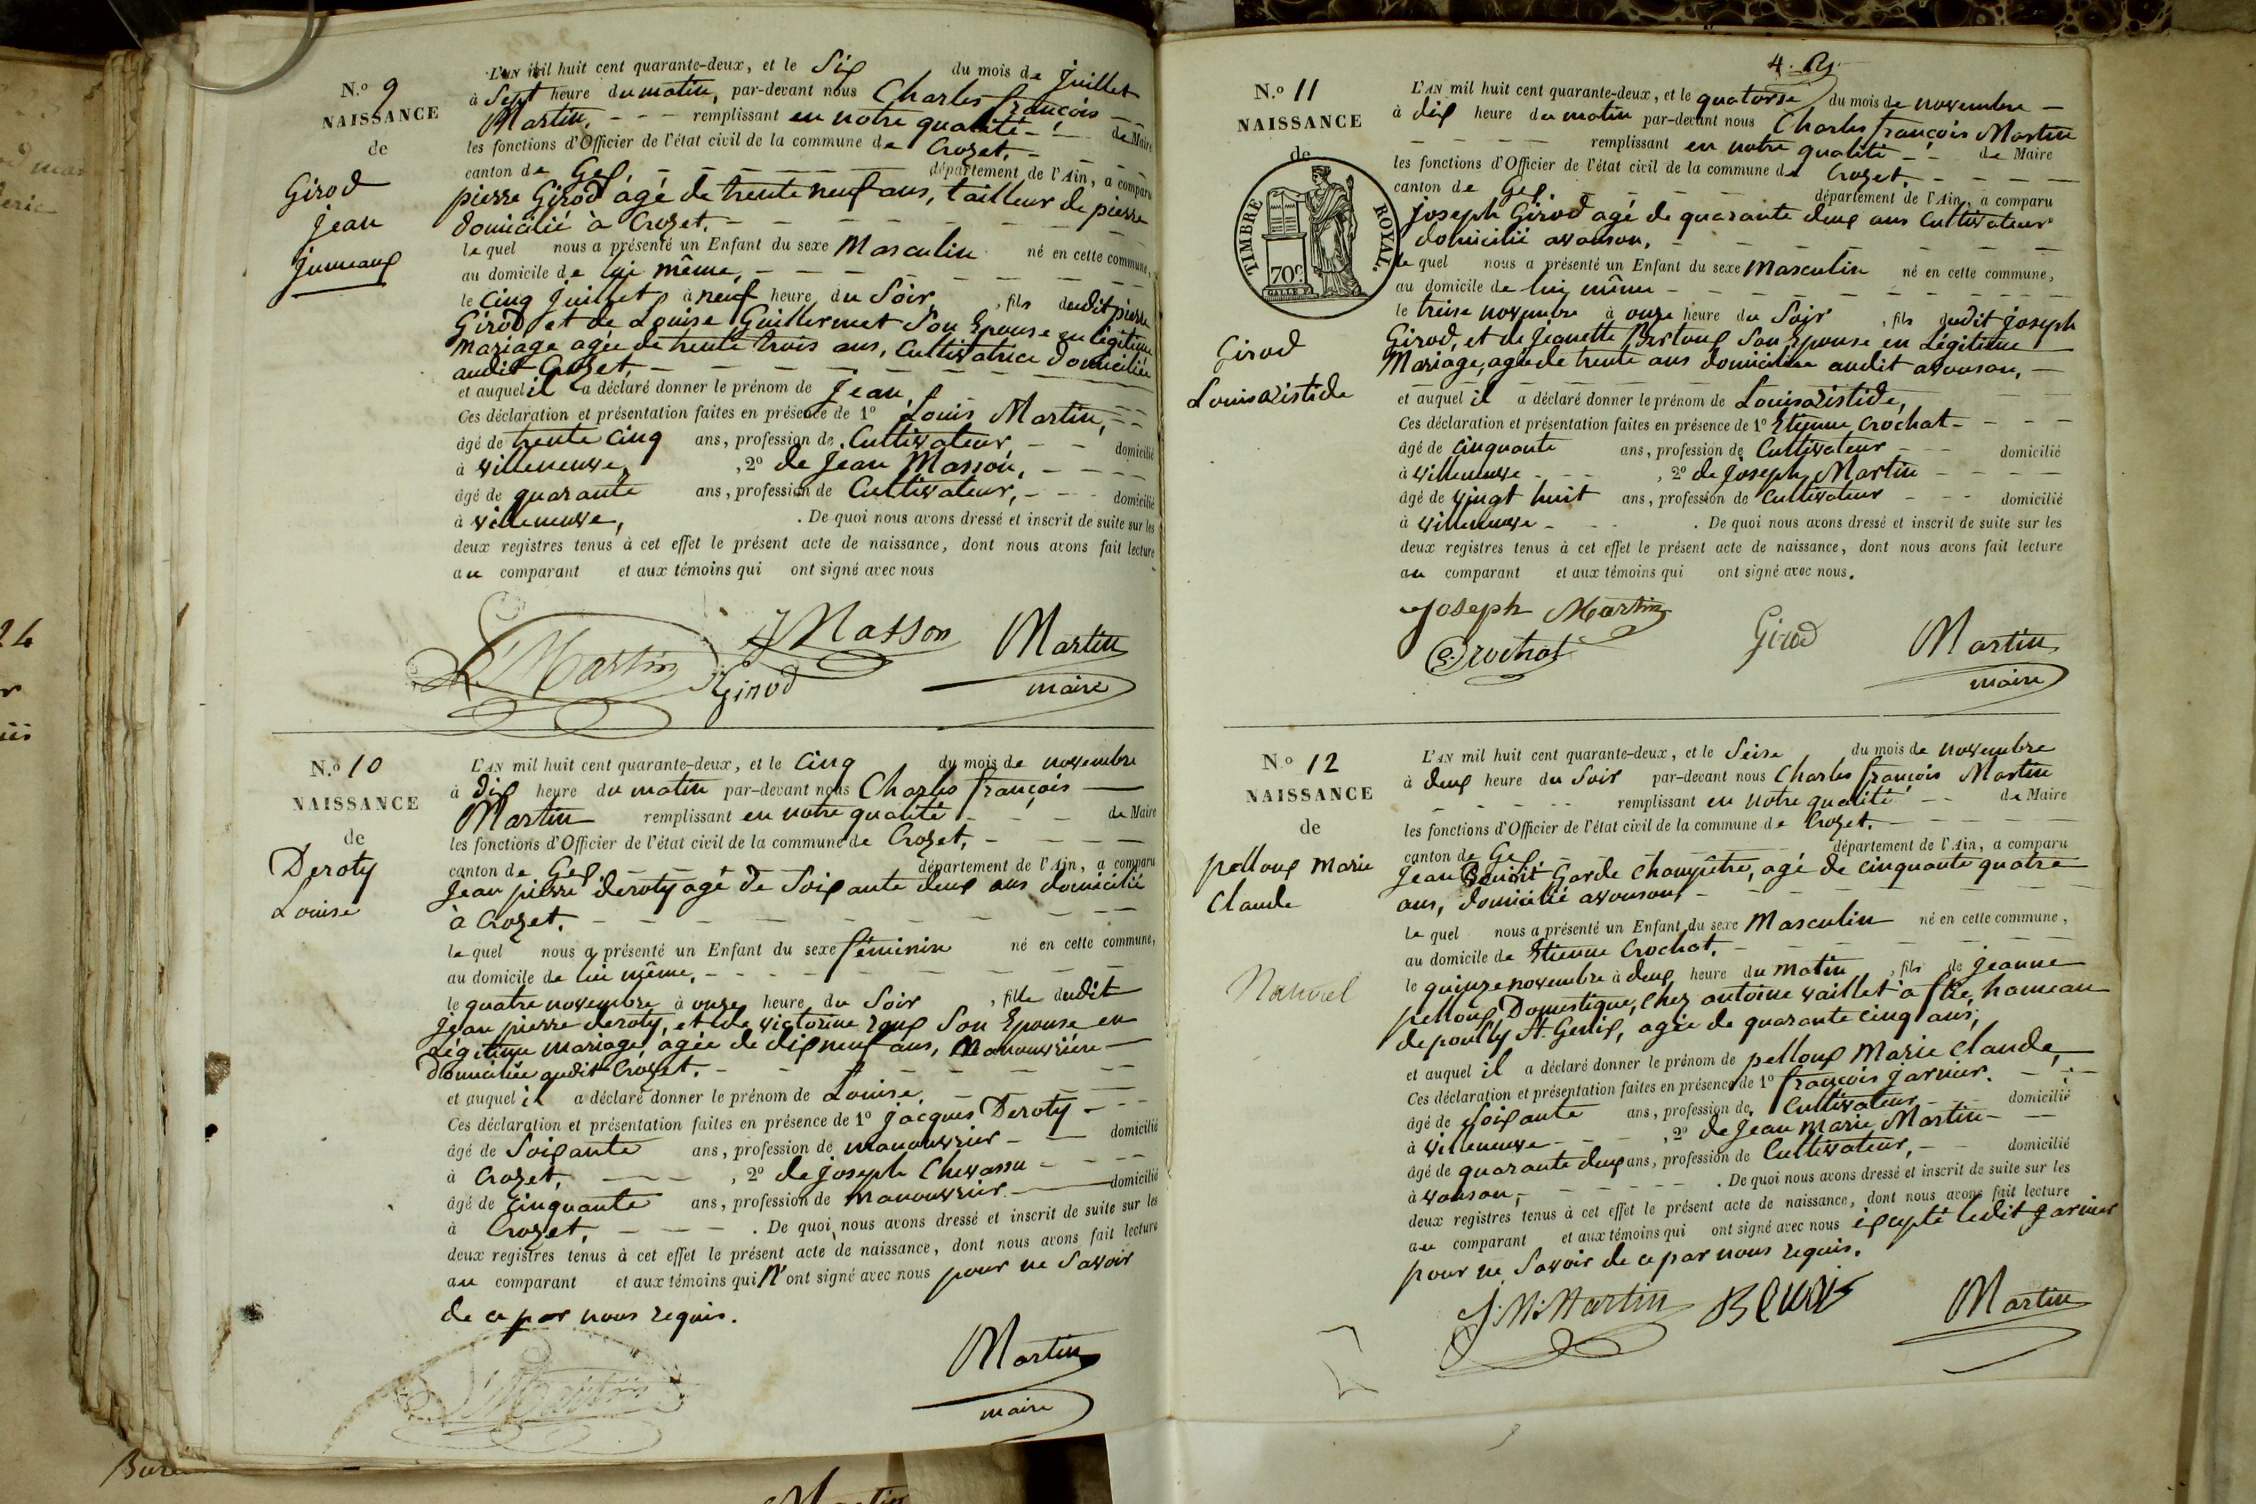 N.º 9
NAISSANCE
de
Girod
jean
jumeaux
L'AN mil huit cent quarante-deux, et le Six du mois de juillet
à Sept heure du matin, par-devant nous Charles françois
Martin, remplissant en notre qualité de Maire
les fonctions d'Officier de l'état civil de la commune de Crozet,
canton de Gex, département de l'Ain, a comparu
pierre Girod agé de trente neuf ans, tailleur de pierre
domicilié à Crozet,
le quel nous a présenté un Enfant du sexe Masculin né en cette commune,
au domicile de lui même
le Cinq juillet à neuf heure du Soir, fils dudit pierre
Girod et de Louise Guillermet Son Epouse en légitime
mariage agée de trente trois ans, Cultivatrice domiciliée
audit Crozet,
et auquel il a déclaré donner le prénom de jean,
Ces déclaration et présentation faites en présence de 1º Louis Martin,
âgé de trente cinq ans, profession de Cultivateur domicilié
à villeneuve, , 2º de jean Masson,
âgé de quarante ans, profession de Cultivateur, domicilié
à villeneuve, . De quoi nous avons dressé et inscrit de suite sur les
deux registres tenus à cet effet le présent acte de naissance, dont nous avons fait lecture
au comparant et aux témoins qui ont signé avec nous
L. Martin J Masson Martin
Girod maire
N.º 10
NAISSANCE
de
Deroty
Louise
L'AN mil huit cent quarante-deux, et le Cinq du mois de novembre
à dix heure du matin par-devant nous Charles françois
Martin remplissant en notre qualité de Maire
les fonctions d'Officier de l'état civil de la commune de Crozet,
canton de Gex, département de l'Ain, a comparu
jean pierre deroty agé de Soixante deux ans domicilié
à Crozet.
le quel nous a présenté un Enfant du sexe féminin né en cette commune,
au domicile de lui même,
le quatre novembre à onze heure du Soir , fille dudit
jean pierre deroty, et de victorine roux Son Epouse en
Légitime mariage agée de dix neuf ans, Manouvrière
Domiciliée audit Crozet.
et auquel il a déclaré donner le prénom de Louise,
Ces déclaration et présentation faites en présence de 1º jacques Deroty
âgé de Soixante ans, profession de manouvrier domicilié
à Crozet, , 2º de joseph Chevassu
âgé de cinquante ans, profession de manouvrier domicilié
à Crozet, . De quoi nous avons dressé et inscrit de suite sur les
deux registres tenus à cet effet le présent acte de naissance, dont nous avons fait lecture
au comparant et aux témoins qui N'ont signé avec nous pour ne Savoir
de ce par nous requis.
Martin
maire
4.
N.º 11
NAISSANCE
de
TIMBRE ROYAL.
70 c
Girod
Louis aristide
L'AN mil huit cent quarante-deux, et le quatorse du mois de novembre
à dix heure du matin par-devant nous Charles françois Martin
remplissant en notre qualité de Maire
les fonctions d'Officier de l'état civil de la commune de Crozet,
canton de Gex, département de l'Ain, a comparu
joseph Girod agé de quarante deux ans Cultivateur
domicilié avouson,
le quel nous a présenté un Enfant du sexe Masculin né en cette commune,
au domicile de lui même
le treise novembre à onze heure du Soir , fils dudit joseph
Girod, et de jeanette Son Epouse en Légitime
Mariage, agée de trente ans domiciliée audit avouson,
et auquel il a déclaré donner le prénom de Louis aristide,
Ces déclaration et présentation faites en présence de 1º Etienne Crochat
âgé de Cinquante ans, profession de Cultivateur domicilié
à villeneuve , 2º de joseph Martin
âgé de vingt huit ans, profession de Cultivateur domicilié
à villeneuve . De quoi nous avons dressé et inscrit de suite sur les
deux registres tenus à cet effet le présent acte de naissance, dont nous avons fait lecture
au comparant et aux témoins qui ont signé avec nous.
Joseph Martin
Crochat Girod Martin
maire
N.º 12
NAISSANCE
de
pelloux Marie
Claude
Naturel
L'AN mil huit cent quarante-deux, et le Seise du mois de novembre
à deux heure du Soir par-devant nous Charles françois Martin
remplissant en notre qualité de Maire
les fonctions d'Officier de l'état civil de la commune de Crozet.
canton de Gex, département de l'Ain, a comparu
jean Benoit Garde champêtre, agé de cinquante quatre
ans, domicilié avouson,
le quel nous a présenté un Enfant du sexe Masculin né en cette commune,
au domicile de Etienne Crochat.
le quinze novembre à deux heure du matin , fils de jeanne
pelloux Domestique, chez antoine vaillet à flie, hameau
de pouilly St. Genix, agée de quarante cinq ans,
et auquel il a déclaré donner le prénom de pelloux Marie Claude,
Ces déclaration et présentation faites en présence de 1º françois garnier.
âgé de Soixante ans, profession de Cultivateur domicilié
à villeneuve , 2º de jean marie Martin
âgé de quarante deux ans, profession de Cultivateur, domicilié
à vouson, . De quoi nous avons dressé et inscrit de suite sur les
deux registres tenus à cet effet le présent acte de naissance, dont nous avons fait lecture
au comparant et aux témoins qui ont signé avec nous excepté ledit garnier
pour ne Savoir de ce par nous requis.
J. M. Martin Benoit Martin